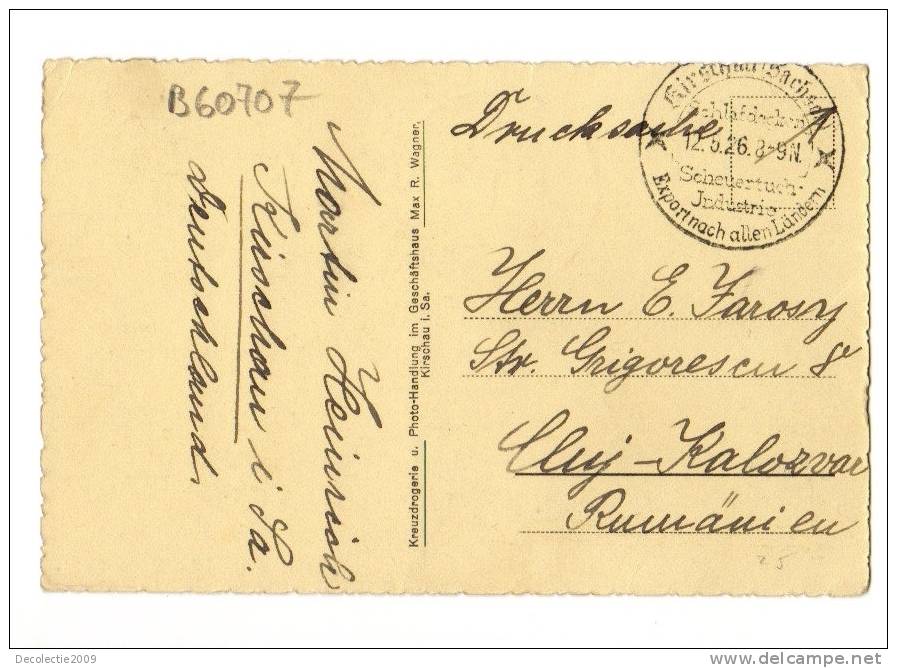 B60707
Martin Heinrich
Kirschau i Sa.
Deutschland
Kreuzdrogerie u. Photo-Handlung im Geschäftshaus Max R. Wagner,
Kirschau i. Sa.
Drucksache
Kirschau (Sachsen)
Schlafdecken
12.5.26.8-9N.
Scheuertuch-
Jndustrie
Export nach allen Ländern
Herrn E. Farosy
Str. Grigorescu 8
Cluj-Kalozvar
Rumänien
25
Decolectie2009
www.delcampe.net